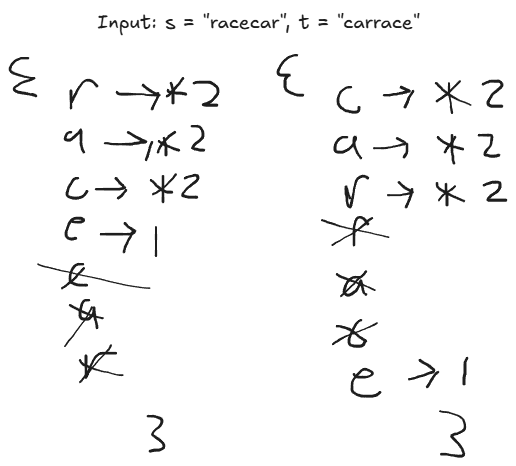 Input: s = "racecar", t = "carrace"
{ r → 2
a → 2
c → 2
e → 1
c
a
r
}
{ c → 2
a → 2
r → 2
r
a
c
e → 1
}